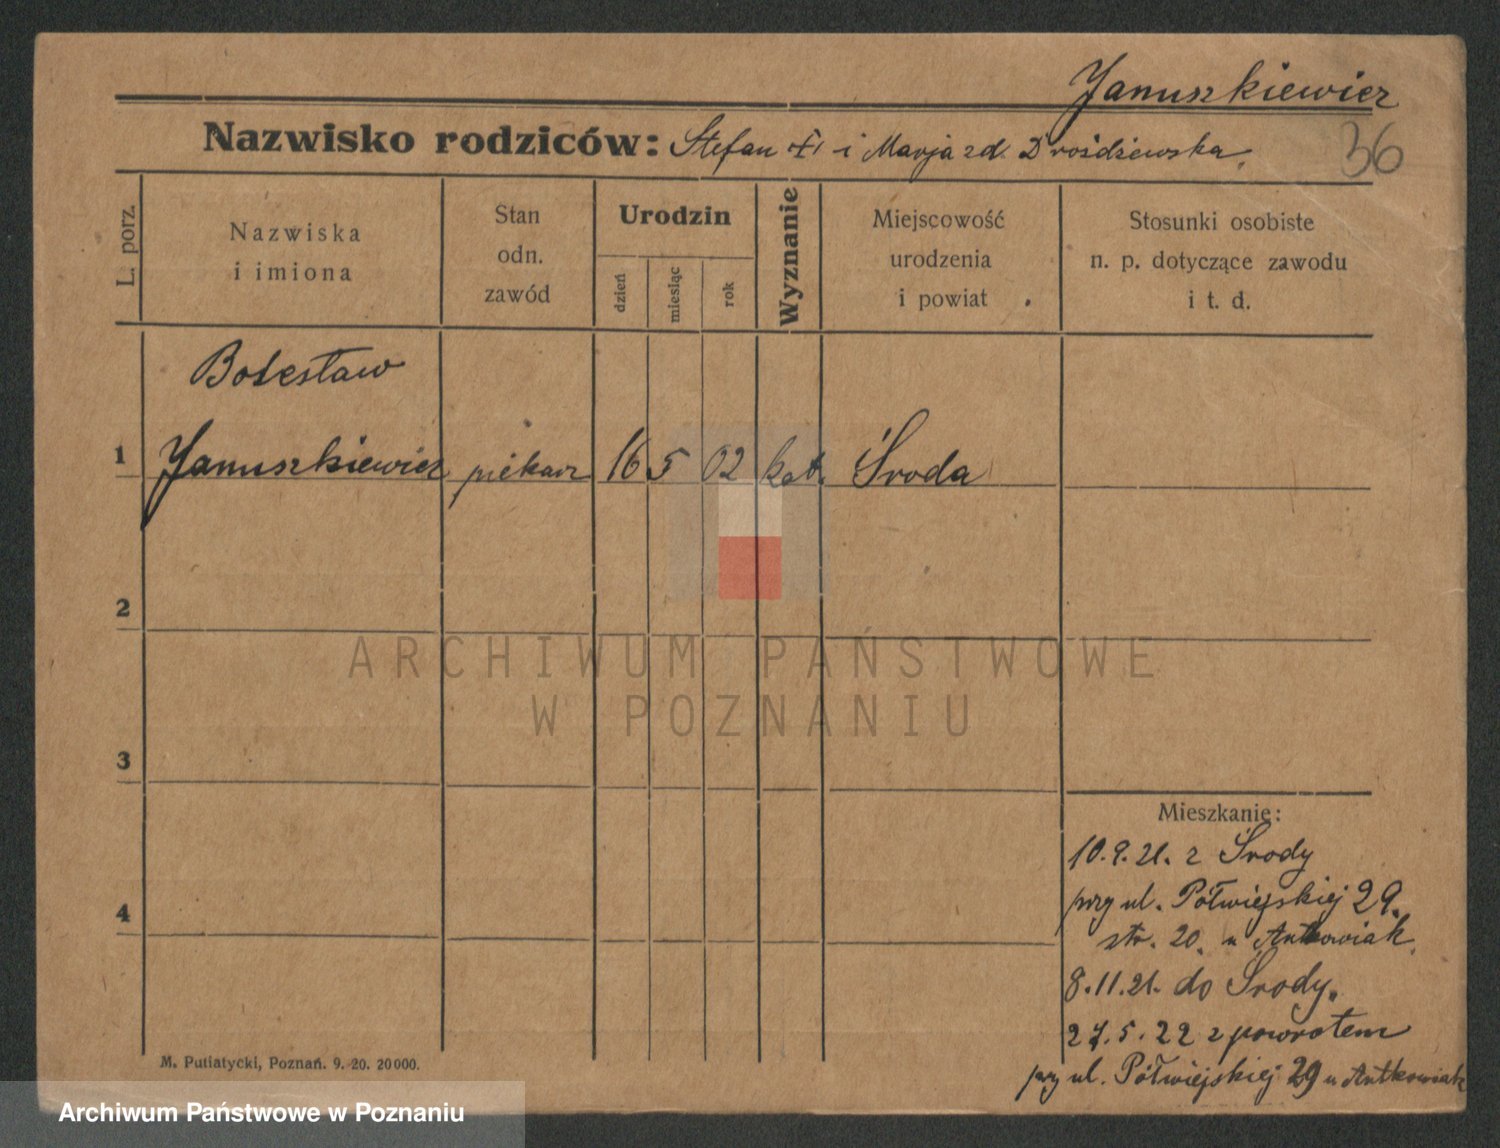 Januszkiewicz
Nazwisko rodziców: Stefan i Marja zd. Drożdżewska.
36
L. porz.
Nazwiska
i imiona
Stan
odn.
zawód
Urodzin
dzień
miesiąc
rok
Wyznanie
Miejscowość
urodzenia
i powiat
Stosunki osobiste
n. p. dotyczące zawodu
i t. d.
Bolesław
1 Januszkiewicz piekarz 16 5 02 kat. Środa
2
ARCHIWUM PAŃSTWOWE
W POZNANIU
3
Mieszkanie:
10.9.21. z Środy
przy ul. Półwiejskiej 29.
str. 20. u Antkowiak.
4
8.11.21. do Środy.
27.5.22 z powrotem
przy ul. Półwiejskiej 29 u Antkowiak
M. Putiatycki, Poznań. 9. 20. 20 000.
Archiwum Państwowe w Poznaniu